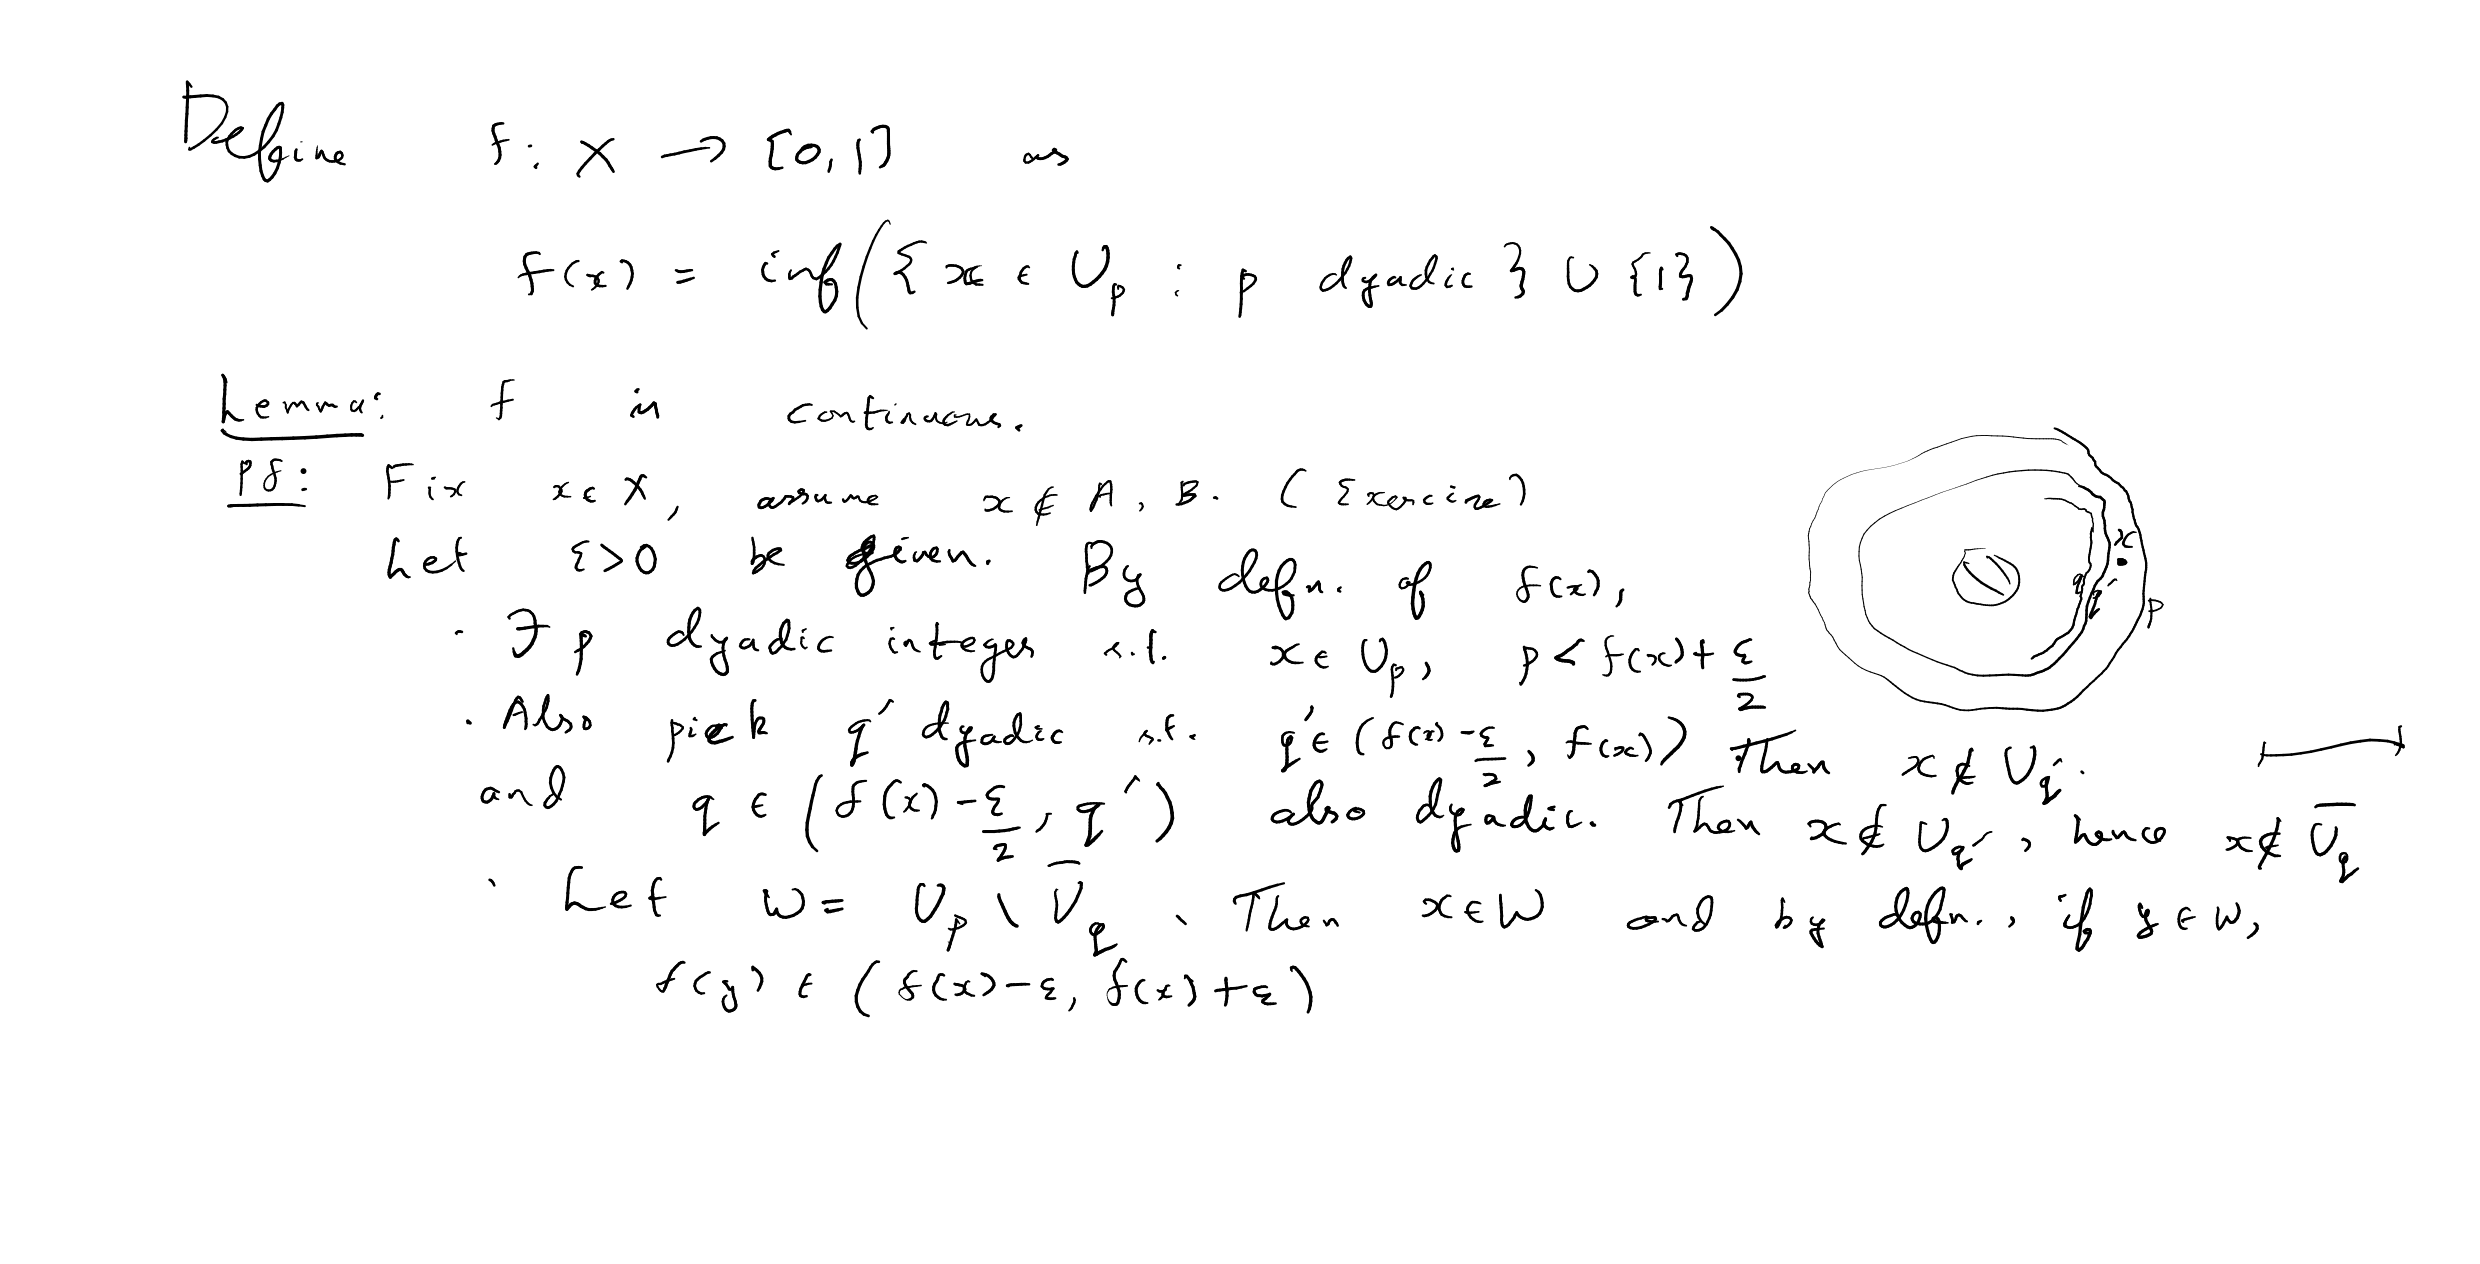 Define f: X → [0,1] as
f(x) = inf({x ∈ U_p : p dyadic} ∪ {1})
Lemma: f is continuous.
Pf: Fix x ∈ X, assume x ∉ A, B. (Exercise)
Let ε>0 be given. By defn. of f(x),
· ∃ p dyadic integer s.t. x ∈ U_p, p < f(x) + ε/2
· Also pick q' dyadic s.t. q' ∈ (f(x) - ε/2, f(x)) Then x ∉ U_q'.
and q ∈ (f(x) - ε/2, q') also dyadic. Then x ∉ U_q', hence x ∉ U̅_q
· Let W = U_p \ U̅_q. Then x ∈ W and by defn., if y ∈ W,
f(y) ∈ (f(x) - ε, f(x) + ε)
x
q
q'
p